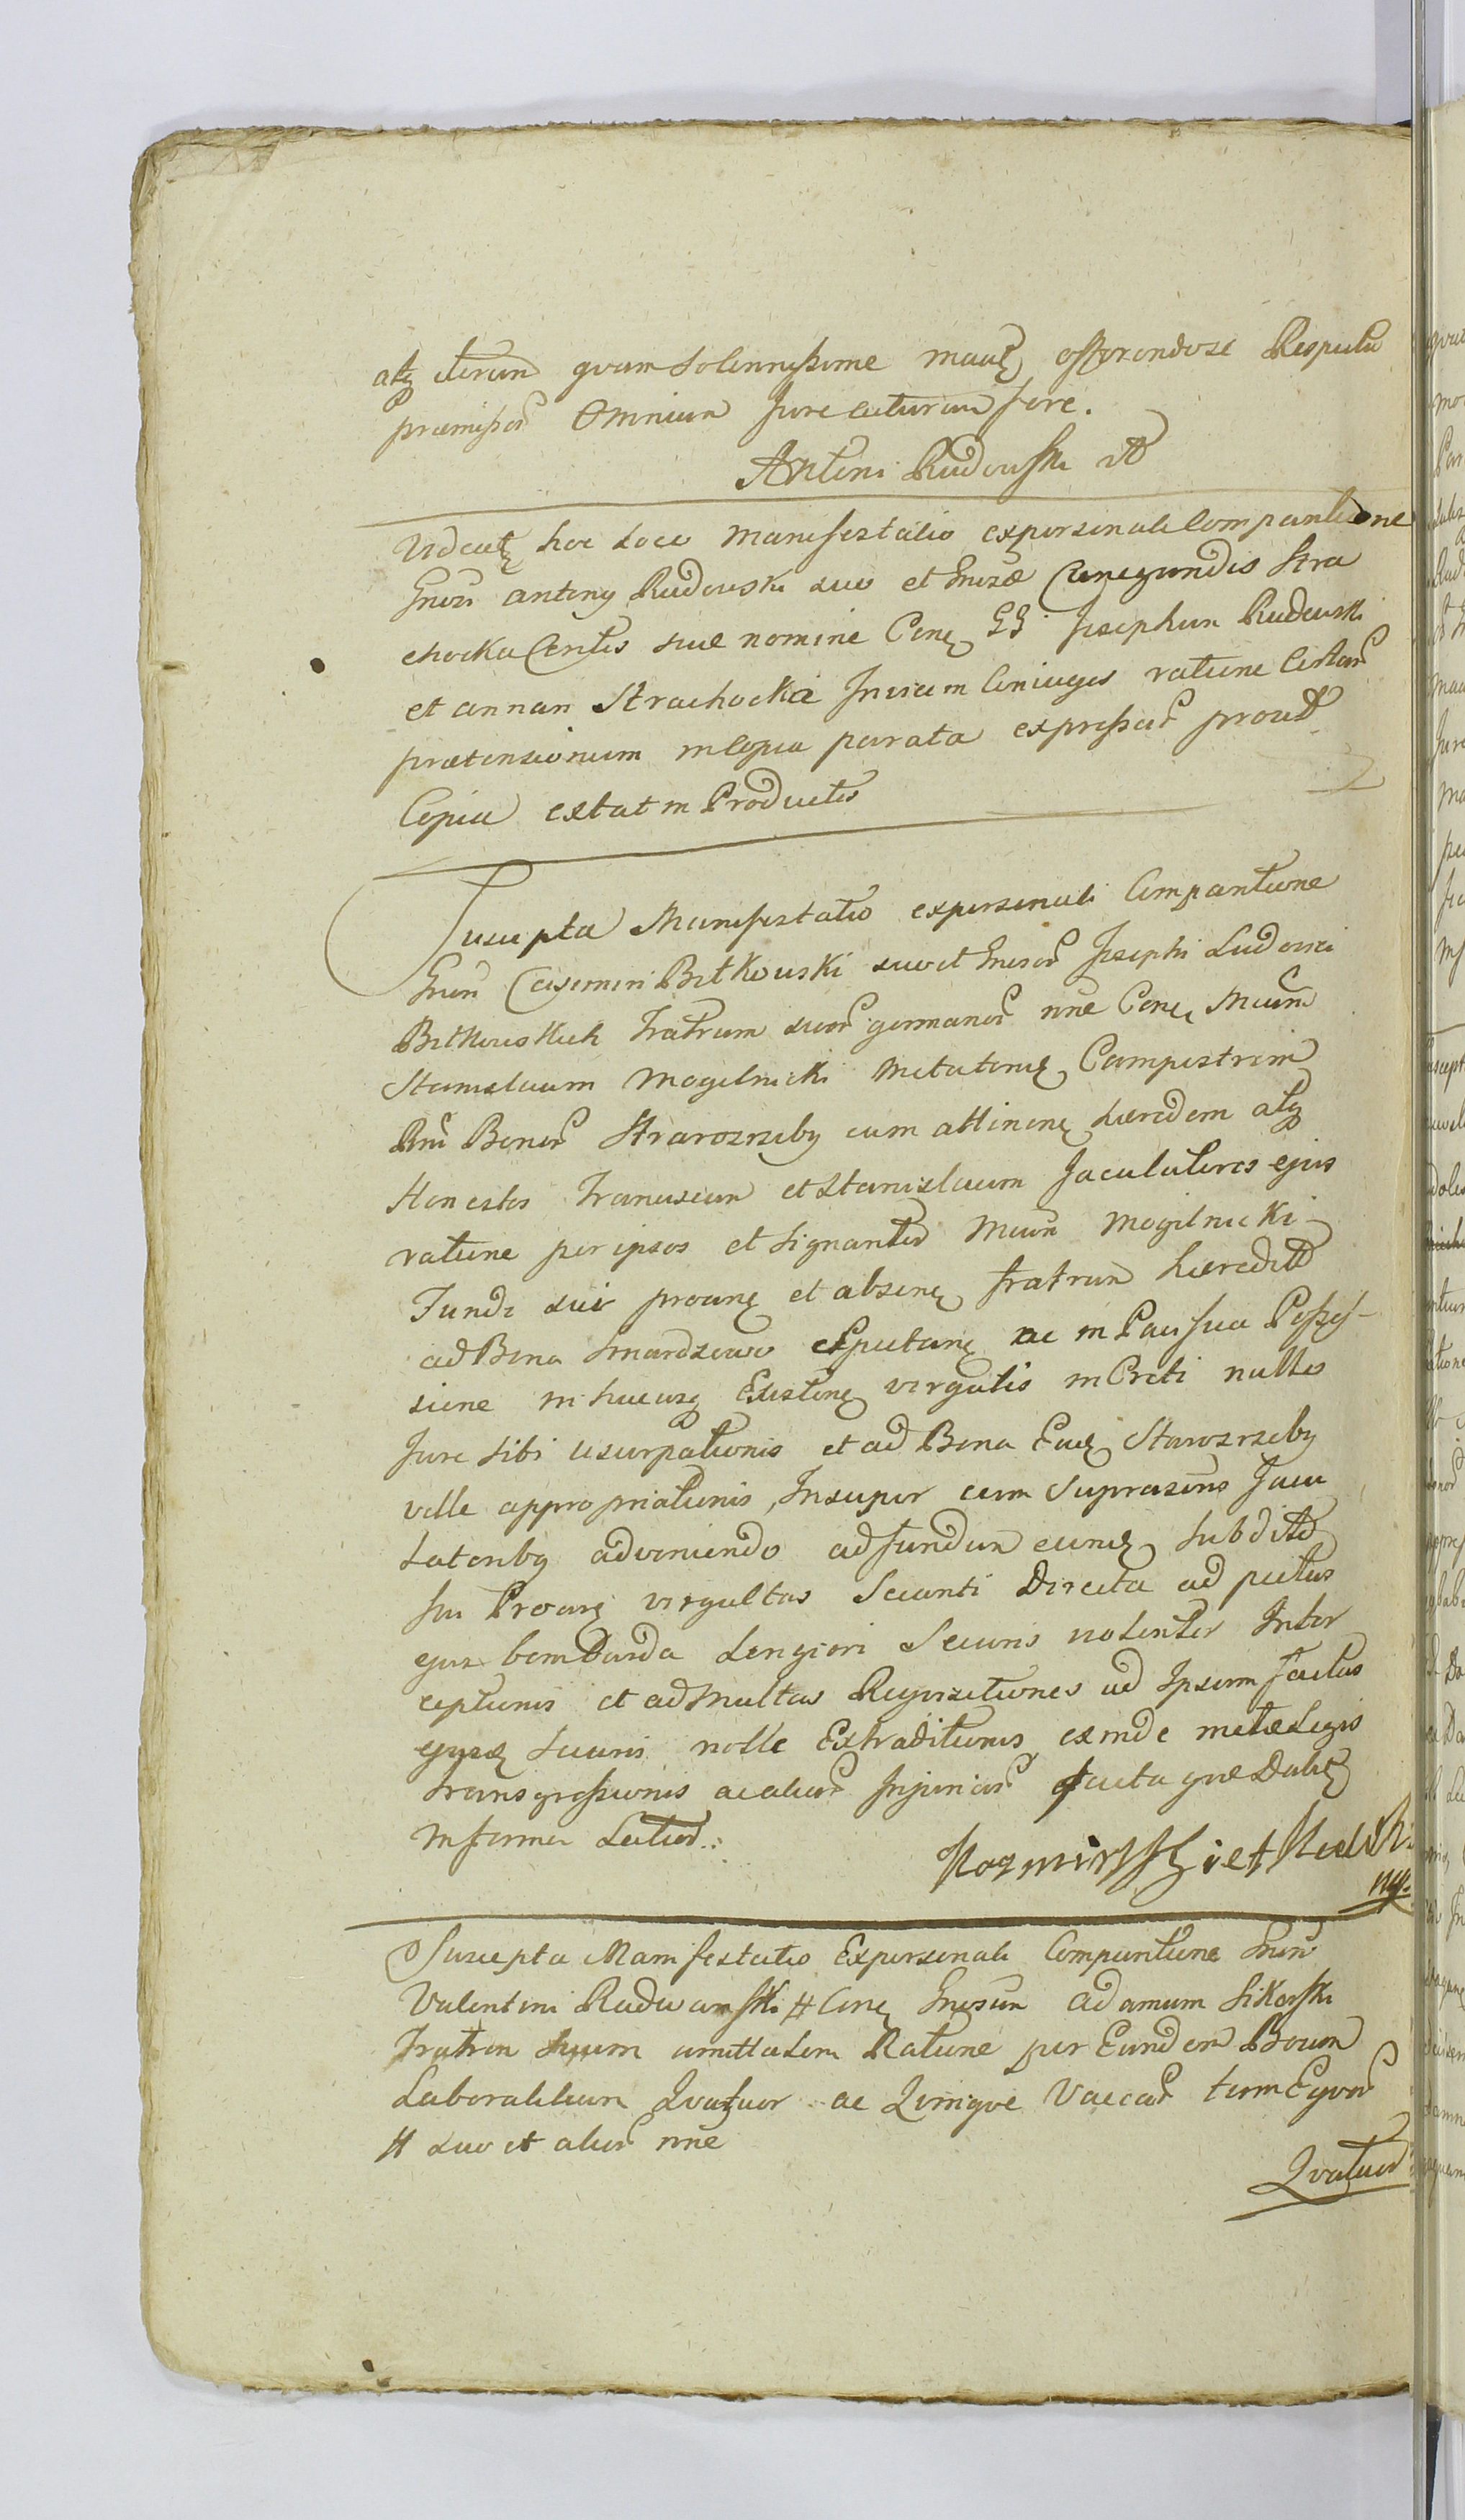 atq iterum quam solennissime manlę offerendose Respectu
præmissor Omnium Jure cuturum fore.
Antoni Rudowski
Videatę hoc Loco Manifestatio expersonali Compantione
Gnosi Antony Rudowski suo et Gnosæ Cunegundis Stra
chocka Contis suæ nomine Conę GG Josephum Rudowski
et annam Strachocka Invicem Coniuges ratione Certar
prætensionum in Copia parata expressar prout
Copia extat in Productis
Suscepta Manifestatio expersonali Compantione
Gnosi Casimiri Bitkowski suo et Gnosor Josephi Ludovici
Bitkowskich Fratrum suor germanor nne Conę Mcum
Stanislaum Mogilnicki Metatorię Campestrem
Bonor Starozrzeby cum attinenę hæredem atq
Honestos Franciscum et Stanislaum Jaculatores ejus
ratione per ipsos et signanter Mcum Mogilnicki
Fundi sui proanę et absenę fratrum hæredit
ad Bona Smardzewo Spectanę ac in Pacifica Posses-
sione in hucusq Existenę virgultis in Preti nullo
Jure sibi usurpationis et ad Bona Eadę Starozrzeby
velle appropriationis, Insuper cum Suprasonis Jacu
latoribq adveniendo ad fundum eundę subdito
sui Proanę virgultas Secanti Directa ad pectus
ejus bombarda Longiori Securis violenter Inter
ceptionis et ad Multas Requisitiones ad Ipsum factas
ejusdę Securis nolle Extraditionis exinde metælegis
transgressionis ac alior Injuriar facta que Dabitę
in forma Latior.
Suscepta Manifestatio Expersonali Compantione Gnosi
Valentini Radwanski # Conę Gnosum Adamum Sikorski
Fratrem suum amittalem Ratione per Eundem Boum
Laboralium Quatuor ac Quinque Vaccar tum Equor
# suo et alior nne
Quatuor